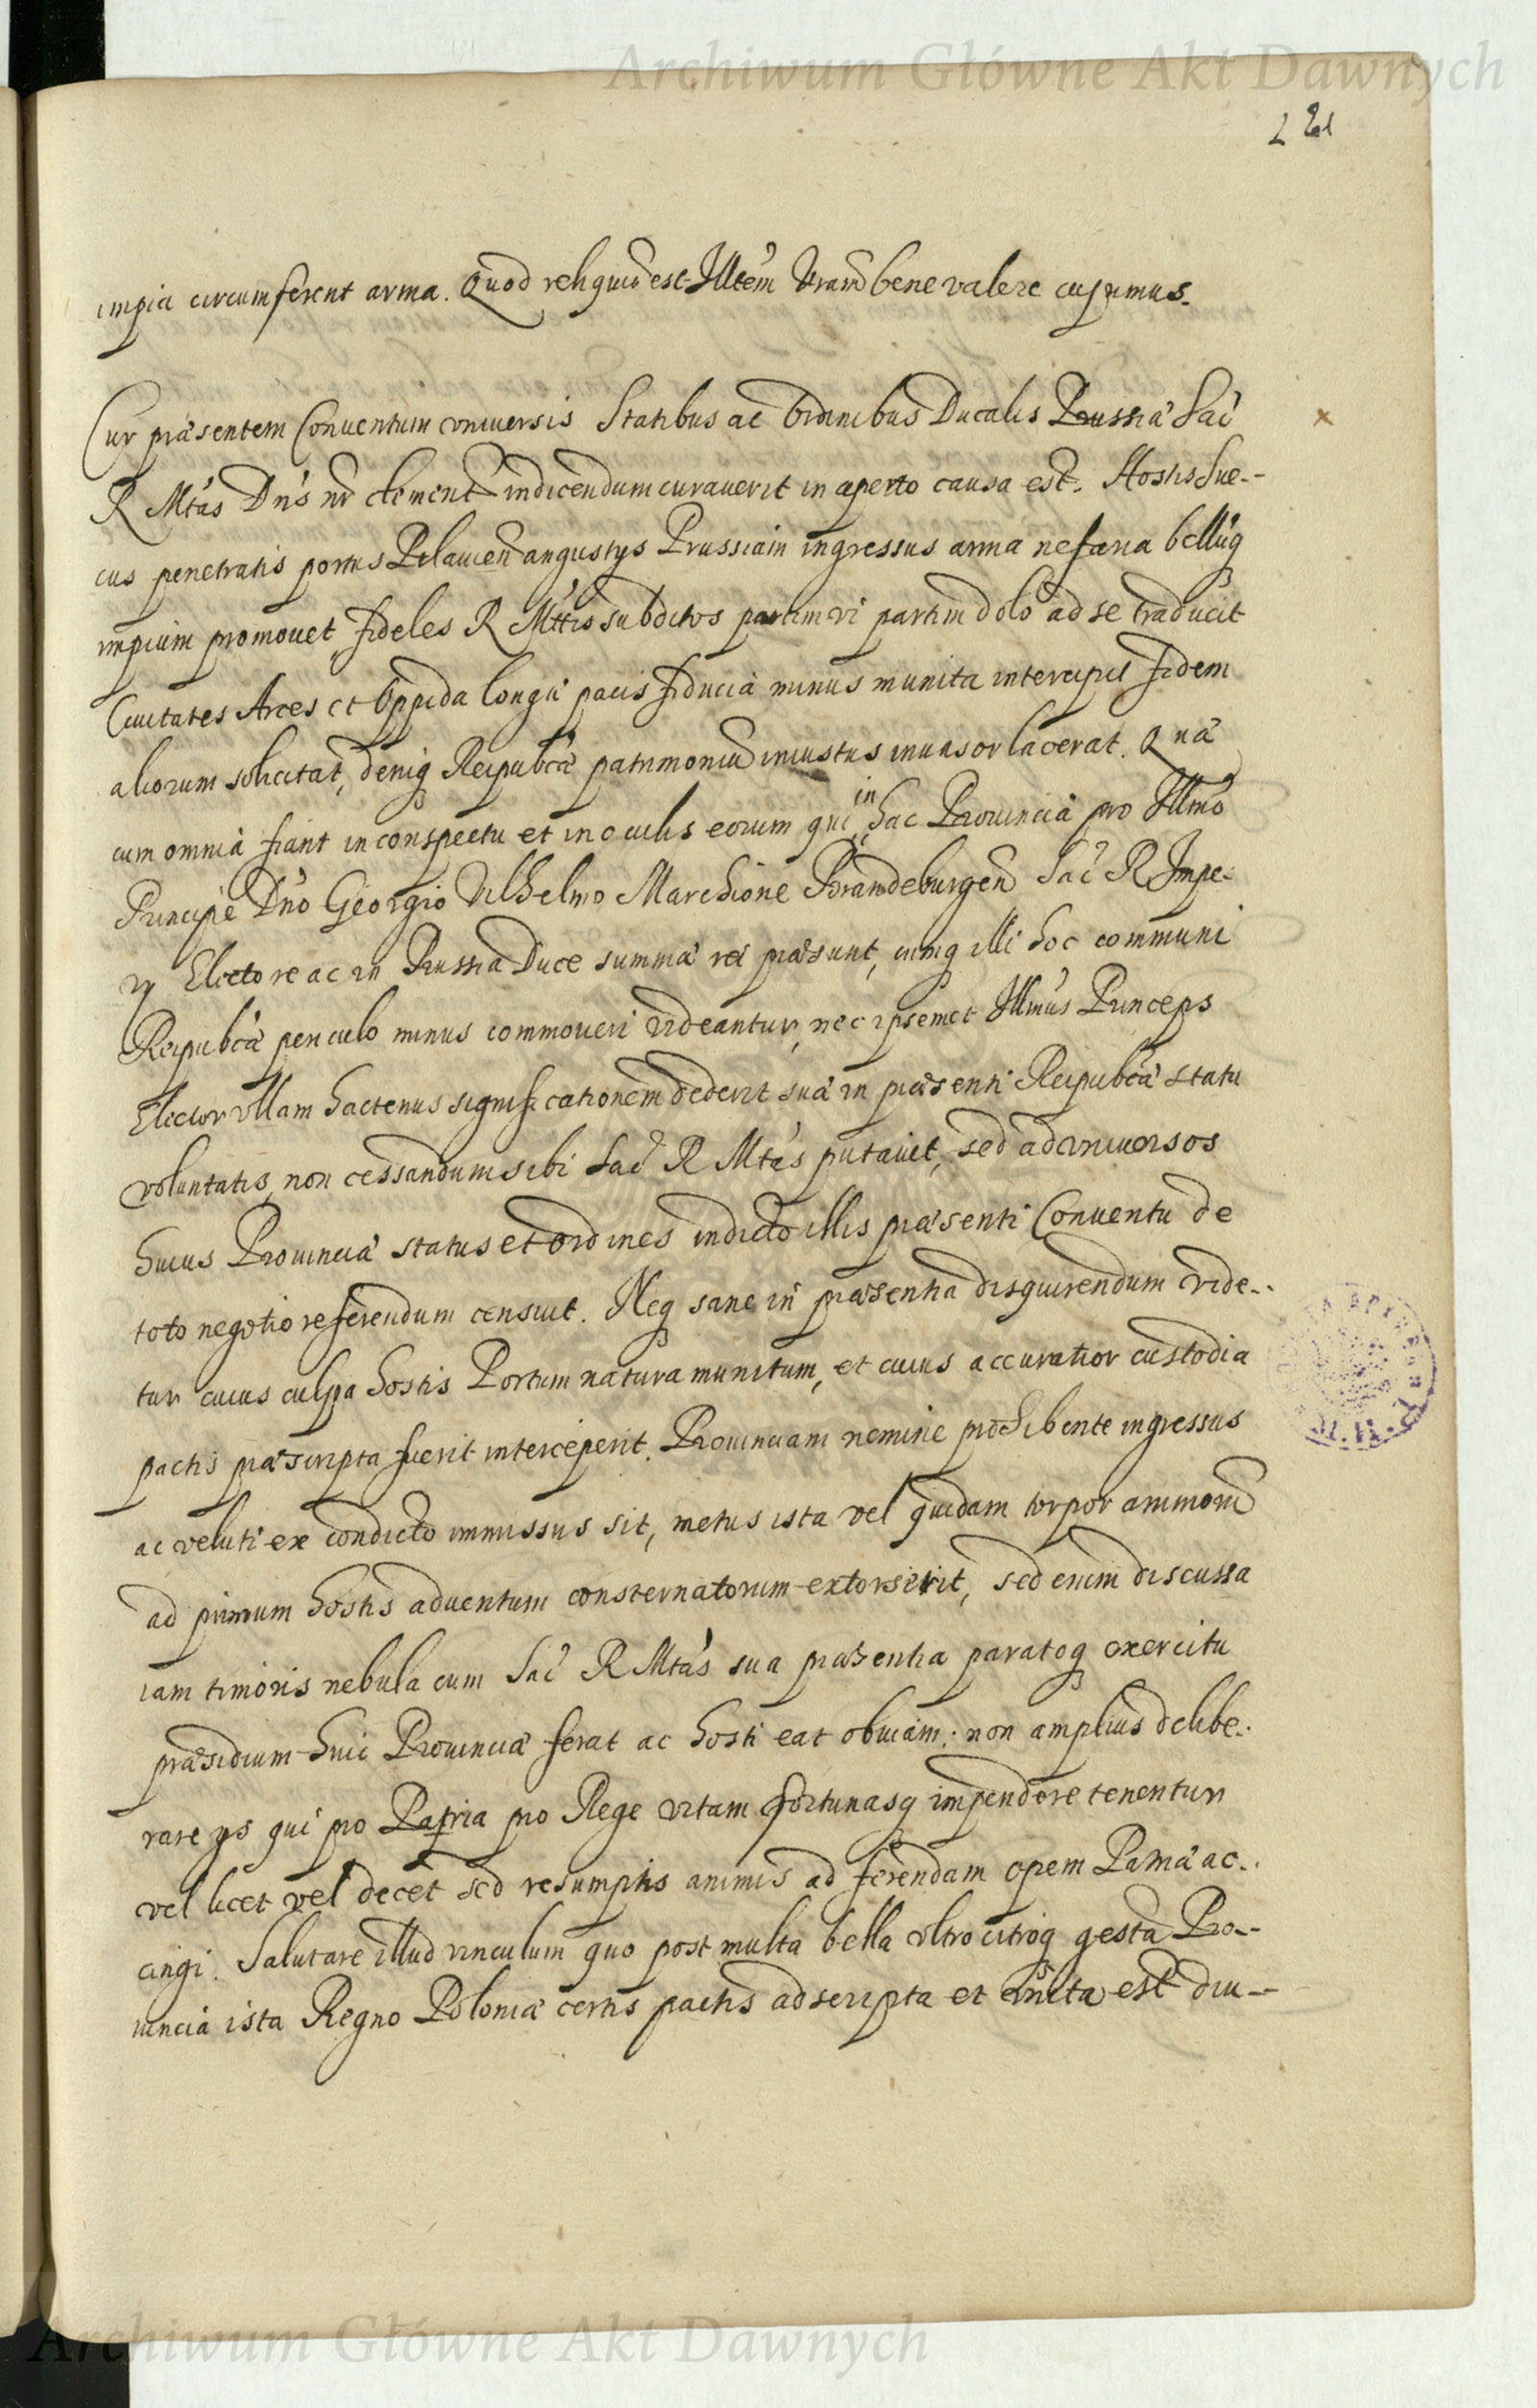 Archiwum Główne Akt Dawnych
impia circumferent arma. Quod reliquũ est Illtem Vram bene valere cupimus.
Cur præsentem Conuentum vniuersis Statibus ac Ordinibus Ducalis Prussiæ Sac
R Mtas Dns nr clement indicendum curauerit in aperto causa est. Hostis Sue-
cus penetratis portus Pilauen angustys Prussiam ingressus arma nefaria bellũq
impium promouet, fideles R Mttis subditos partim vi partim dolo ad se traducit
Ciuitates Arces et Oppida longæ pacis fiducia minus munita intercipit fidem
aliorum solicitat, deniq Reipubcæ patrimoniũ iniustus inuasor lacerat. Quæ
cum omnia fiant in conspectu et in oculis eorum qui in hac Prouincia pro Illmo
Principe Dno Georgio Vilhelmo Marchione Brandeburgen Sac R Impe-
ry Electore ac in Prussia Duce summæ rei præsunt, cumq illi hoc communi
Reipubcæ periculo minus commoueri videantur, nec ipsemet Illmus Princeps
Elector vllam hactenus significationem dederit suæ in præsenti Reipubcæ statu
voluntatis, non cessandum sibi Sac R Mtas putauit, sed ad vniuersos
huius Prouinciæ status et ordines indicto illis præsenti Conuentu de
toto negotio referendum censuit. Neq sane in præsentia disquirendum vide-
tur cuius culpa hostis Portum natura munitum, et cuius accuratior custodia
pactis præscripta fuerit interceperit. Prouinciam nemine prohibente ingressus
ac veluti ex condicto immissus sit, metus ista vel quidam torpor animorũ
ad primum hostis aduentum consternatorum extorserit, sed enim discussa
iam timoris nebula cum Sac R Mtas sua præsentia paratoq exercitu
præsidium huic Prouinciæ ferat ac hosti eat obuiam: non amplius delibe-
rare ys qui pro Patria pro Rege vitam fortunasq impendere tenentur
vel licet vel decet sed resumptis animis ad ferendam opem Patriæ ac-
cingi. Salutare illud vinculum quo post multa bella vltro citroq gesta Pro-
uincia ista Regno Poloniæ certis pactis adscripta et vnita est diu-
Archiwum Główne Akt Dawnych